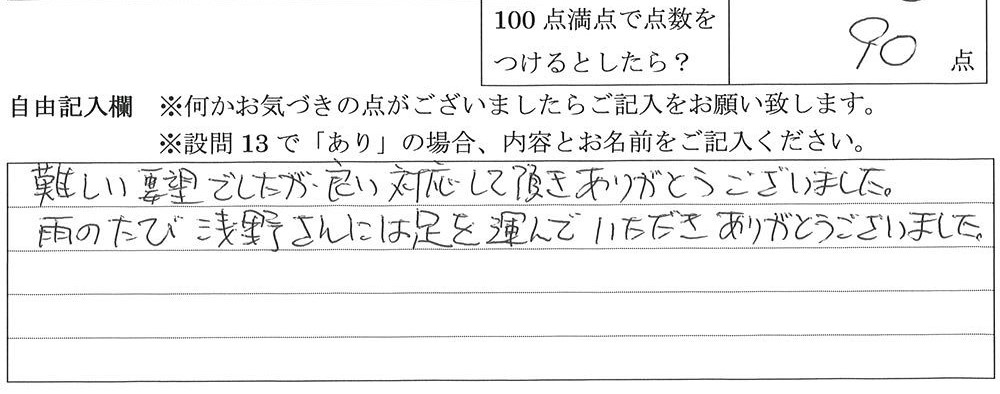 100 点満点で点数を
つけるとしたら？
90 点
自由記入欄 ※何かお気づきの点がございましたらご記入をお願い致します。
※設問 13 で「あり」の場合、内容とお名前をご記入ください。
難しい要望でしたが良い対応して頂きありがとうございました。
雨のたび浅野さんには足を運んでいただきありがとうございました。